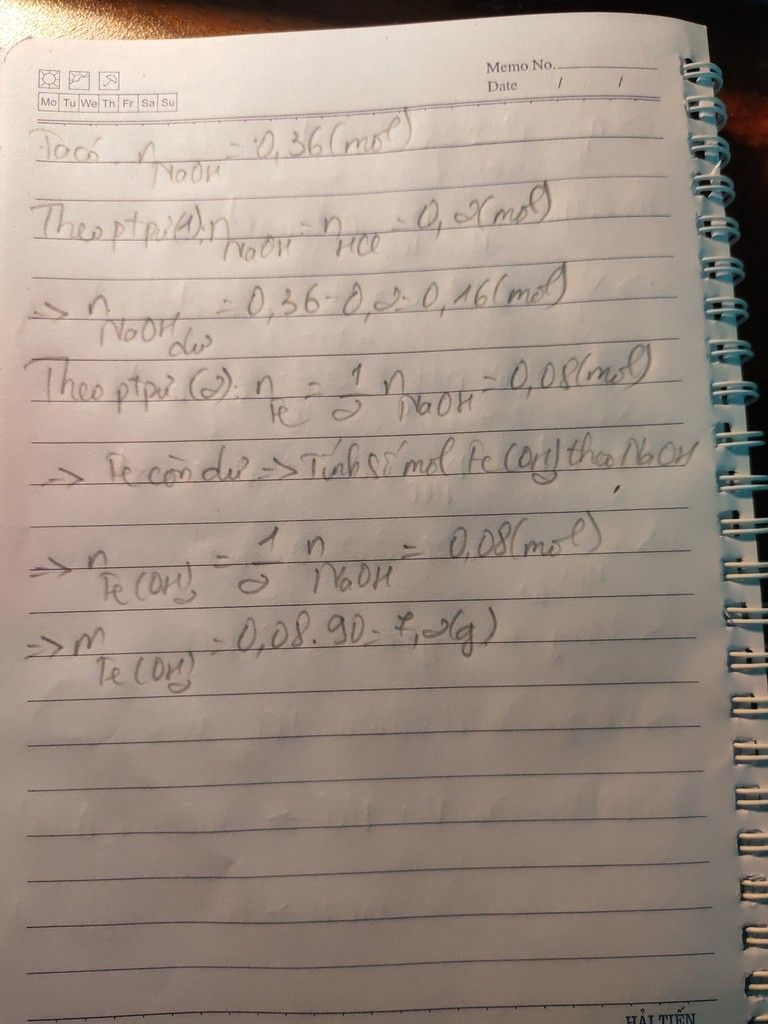 Memo No.
Date / /
Mo Tu We Th Fr Sa Su
Ta có n NaOH = 0,36 (mol)
Theo ptpứ (1): n NaOH = n HCl = 0,2 (mol)
=> n NaOH dư = 0,36 - 0,2 = 0,16 (mol)
Theo ptpứ (2): n Fe = 1/2 n NaOH = 0,08 (mol)
=> Fe còn dư => Tính số mol Fe(OH)2 theo NaOH
=> n Fe(OH)2 = 1/2 n NaOH = 0,08 (mol)
=> m Fe(OH)2 = 0,08.90 = 7,2 (g)
HẢI TIẾN